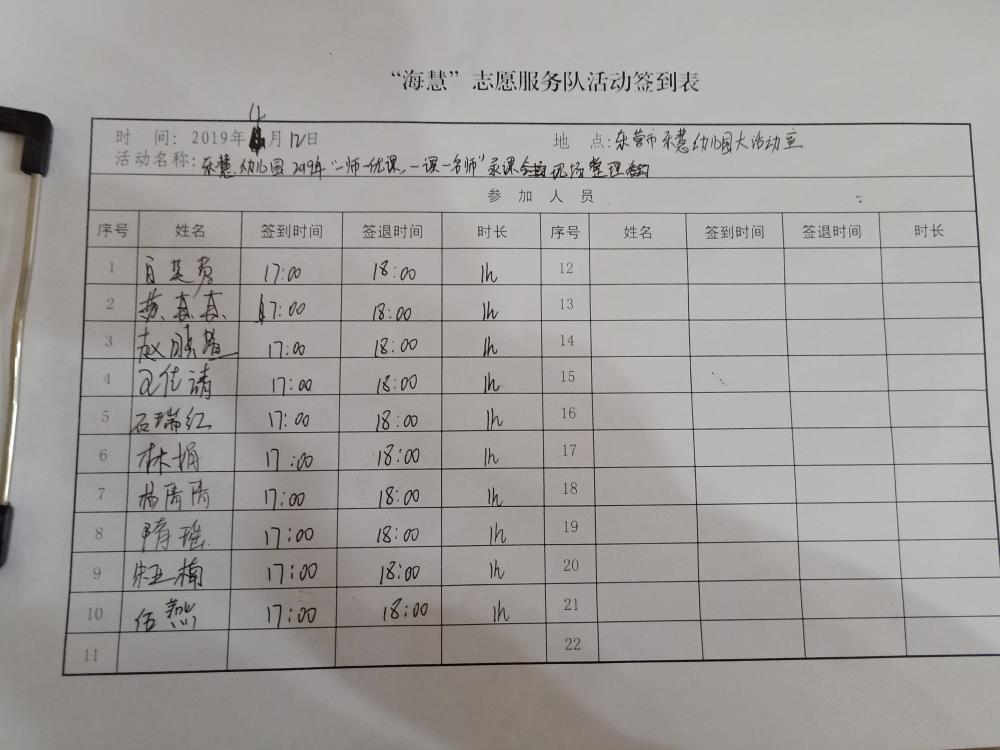 “海慧”志愿服务队活动签到表
时 间: 2019年4月12日 地 点: 东营市东慧幼儿园大活动室
活动名称: 东慧幼儿园2019年“一师一优课,一课一名师”录课现场整理
参 加 人 员
序号 姓名 签到时间 签退时间 时长 序号 姓名 签到时间 签退时间 时长
1 17:00 18:00 1h 12
2 17:00 18:00 1h 13
3 赵 17:00 18:00 1h 14
4 17:00 18:00 1h 15
5 石瑞红 17:00 18:00 1h 16
6 林娟 17:00 18:00 1h 17
7 杨倩倩 17:00 18:00 1h 18
8 隋瑶 17:00 18:00 1h 19
9 宋亚楠 17:00 18:00 1h 20
10 伍燕 17:00 18:00 1h 21
11 22